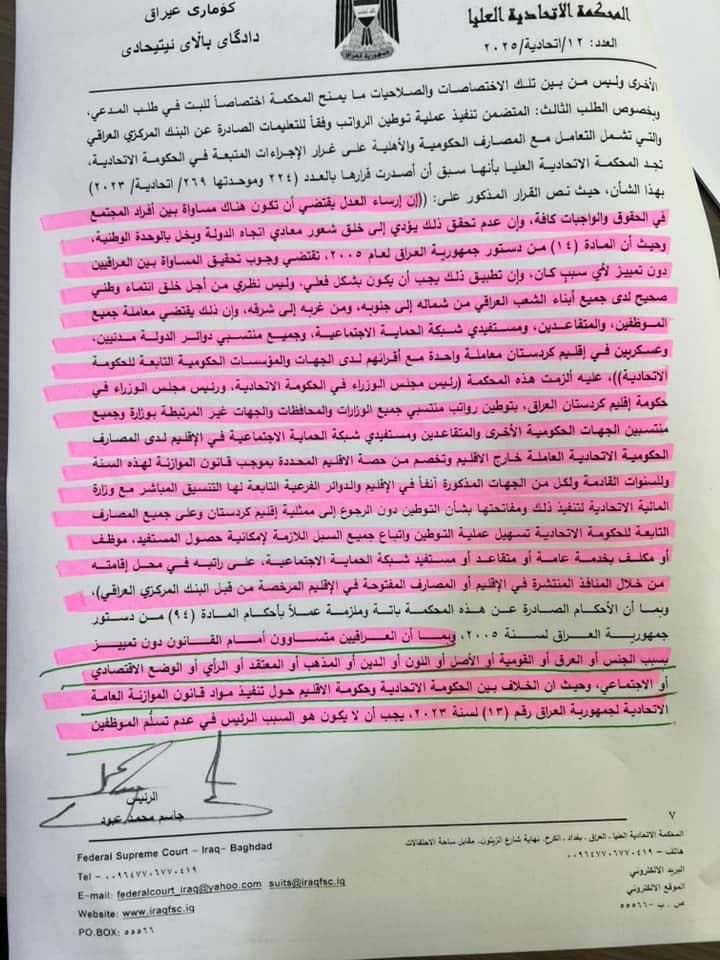 كۆماری عیراق
دادگای باڵای ئیتیحادی
جمهورية العراق
المحكمة الاتحادية العليا
العدد: ١٢/اتحادية/٢٠٢٥
الأخرى وليس من بين تلك الاختصاصات والصلاحيات ما يمنح المحكمة اختصاصاً للبت في طلب المدعي،
وبخصوص الطلب الثالث: المتضمن تنفيذ عملية توطين الرواتب وفقاً للتعليمات الصادرة عن البنك المركزي العراقي
والتي تشمل التعامل مع المصارف الحكومية والأهلية على غرار الإجراءات المتبعة في الحكومة الاتحادية،
تجد المحكمة الاتحادية العليا بأنها سبق أن أصدرت قرارها بالعدد (٢٢٤ وموحدتها ٢٦٩/ اتحادية/ ٢٠٢٣)
بهذا الشأن، حيث نص القرار المذكور على: ((إن إرساء العدل يقتضي أن تكون هناك مساواة بين أفراد المجتمع
في الحقوق والواجبات كافة، وإن عدم تحقق ذلك يؤدي إلى خلق شعور معادي اتجاه الدولة ويخل بالوحدة الوطنية،
وحيث أن المادة (١٤) من دستور جمهورية العراق لعام ٢٠٠٥، تقتضي وجوب تحقيق المساواة بين العراقيين
دون تمييز لأي سبب كان، وإن تطبيق ذلك يجب أن يكون بشكل فعلي، وليس نظري من أجل خلق انتماء وطني
صحيح لدى جميع أبناء الشعب العراقي من شماله إلى جنوبه، ومن غربه إلى شرقه، وإن ذلك يقتضي معاملة جميع
الموظفين، والمتقاعدين، ومستفيدي شبكة الحماية الاجتماعية، وجميع منتسبي دوائر الدولة مدنيين،
وعسكريين في إقليم كردستان معاملة واحدة مع أقرانهم لدى الجهات والمؤسسات الحكومية التابعة للحكومة
الاتحادية))، عليه ألزمت هذه المحكمة (رئيس مجلس الوزراء في الحكومة الاتحادية، ورئيس مجلس الوزراء في
حكومة إقليم كردستان العراق، بتوطين رواتب منتسبي جميع الوزارات والمحافظات والجهات غير المرتبطة بوزارة وجميع
منتسبين الجهات الحكومية الأخرى والمتقاعدين ومستفيدي شبكة الحماية الاجتماعية في الإقليم لدى المصارف
الحكومية الاتحادية العاملة خارج الاقليم وتخصم من حصة الاقليم المحددة بموجب قانون الموازنة لهذه السنة
وللسنوات القادمة ولكل من الجهات المذكورة آنفاً في الإقليم والدوائر الفرعية التابعة لها التنسيق المباشر مع وزارة
المالية الاتحادية لتنفيذ ذلك ومفاتحتها بشأن التوطين دون الرجوع إلى ممثلية إقليم كردستان وعلى جميع المصارف
التابعة للحكومة الاتحادية تسهيل عملية التوطين واتباع جميع السبل اللازمة لإمكانية حصول المستفيد، موظف
أو مكلف بخدمة عامة أو متقاعد أو مستفيد شبكة الحماية الاجتماعية، على راتبه في محل إقامته
من خلال المنافذ المنتشرة في الإقليم أو المصارف المفتوحة في الإقليم المرخصة من قبل البنك المركزي العراقي)،
وبما أن الأحكام الصادرة عن هذه المحكمة باتة وملزمة عملاً بأحكام المادة (٩٤) من دستور
جمهورية العراق لسنة ٢٠٠٥، وبما أن العراقيين متساوون أمام القانون دون تمييز
بسبب الجنس أو العرق أو القومية أو الأصل أو اللون أو الدين أو المذهب أو المعتقد أو الرأي أو الوضع الاقتصادي
أو الاجتماعي، وحيث ان الخلاف بين الحكومة الاتحادية وحكومة الاقليم حول تنفيذ مواد قانون الموازنة العامة
الاتحادية لجمهورية العراق رقم (١٣) لسنة ٢٠٢٣، يجب أن لا يكون هو السبب الرئيس في عدم تسلُّم الموظفين
الرئيس
جاسم محمد عبود
٧
المحكمة الاتحادية العليا ، العراق ، بغداد ، الكرخ، نهاية شارع الزيتون، مقابل ساحة الاحتفالات
هاتف – ٠٠٩٦٤٧٧٠٦٧٧٠٤١٩
البريد الالكتروني
الموقع الالكتروني
ص . ب – ٥٥٥٦٦
Federal Supreme Court – Iraq– Baghdad
Tel – ٠٠٩٦٤٧٧٠٦٧٧٠٤١٩
E-mail: federalcourt_iraq@yahoo.com suits@iraqfsc.iq
Website: www.iraqfsc.iq
PO.BOX: ٥٥٥٦٦